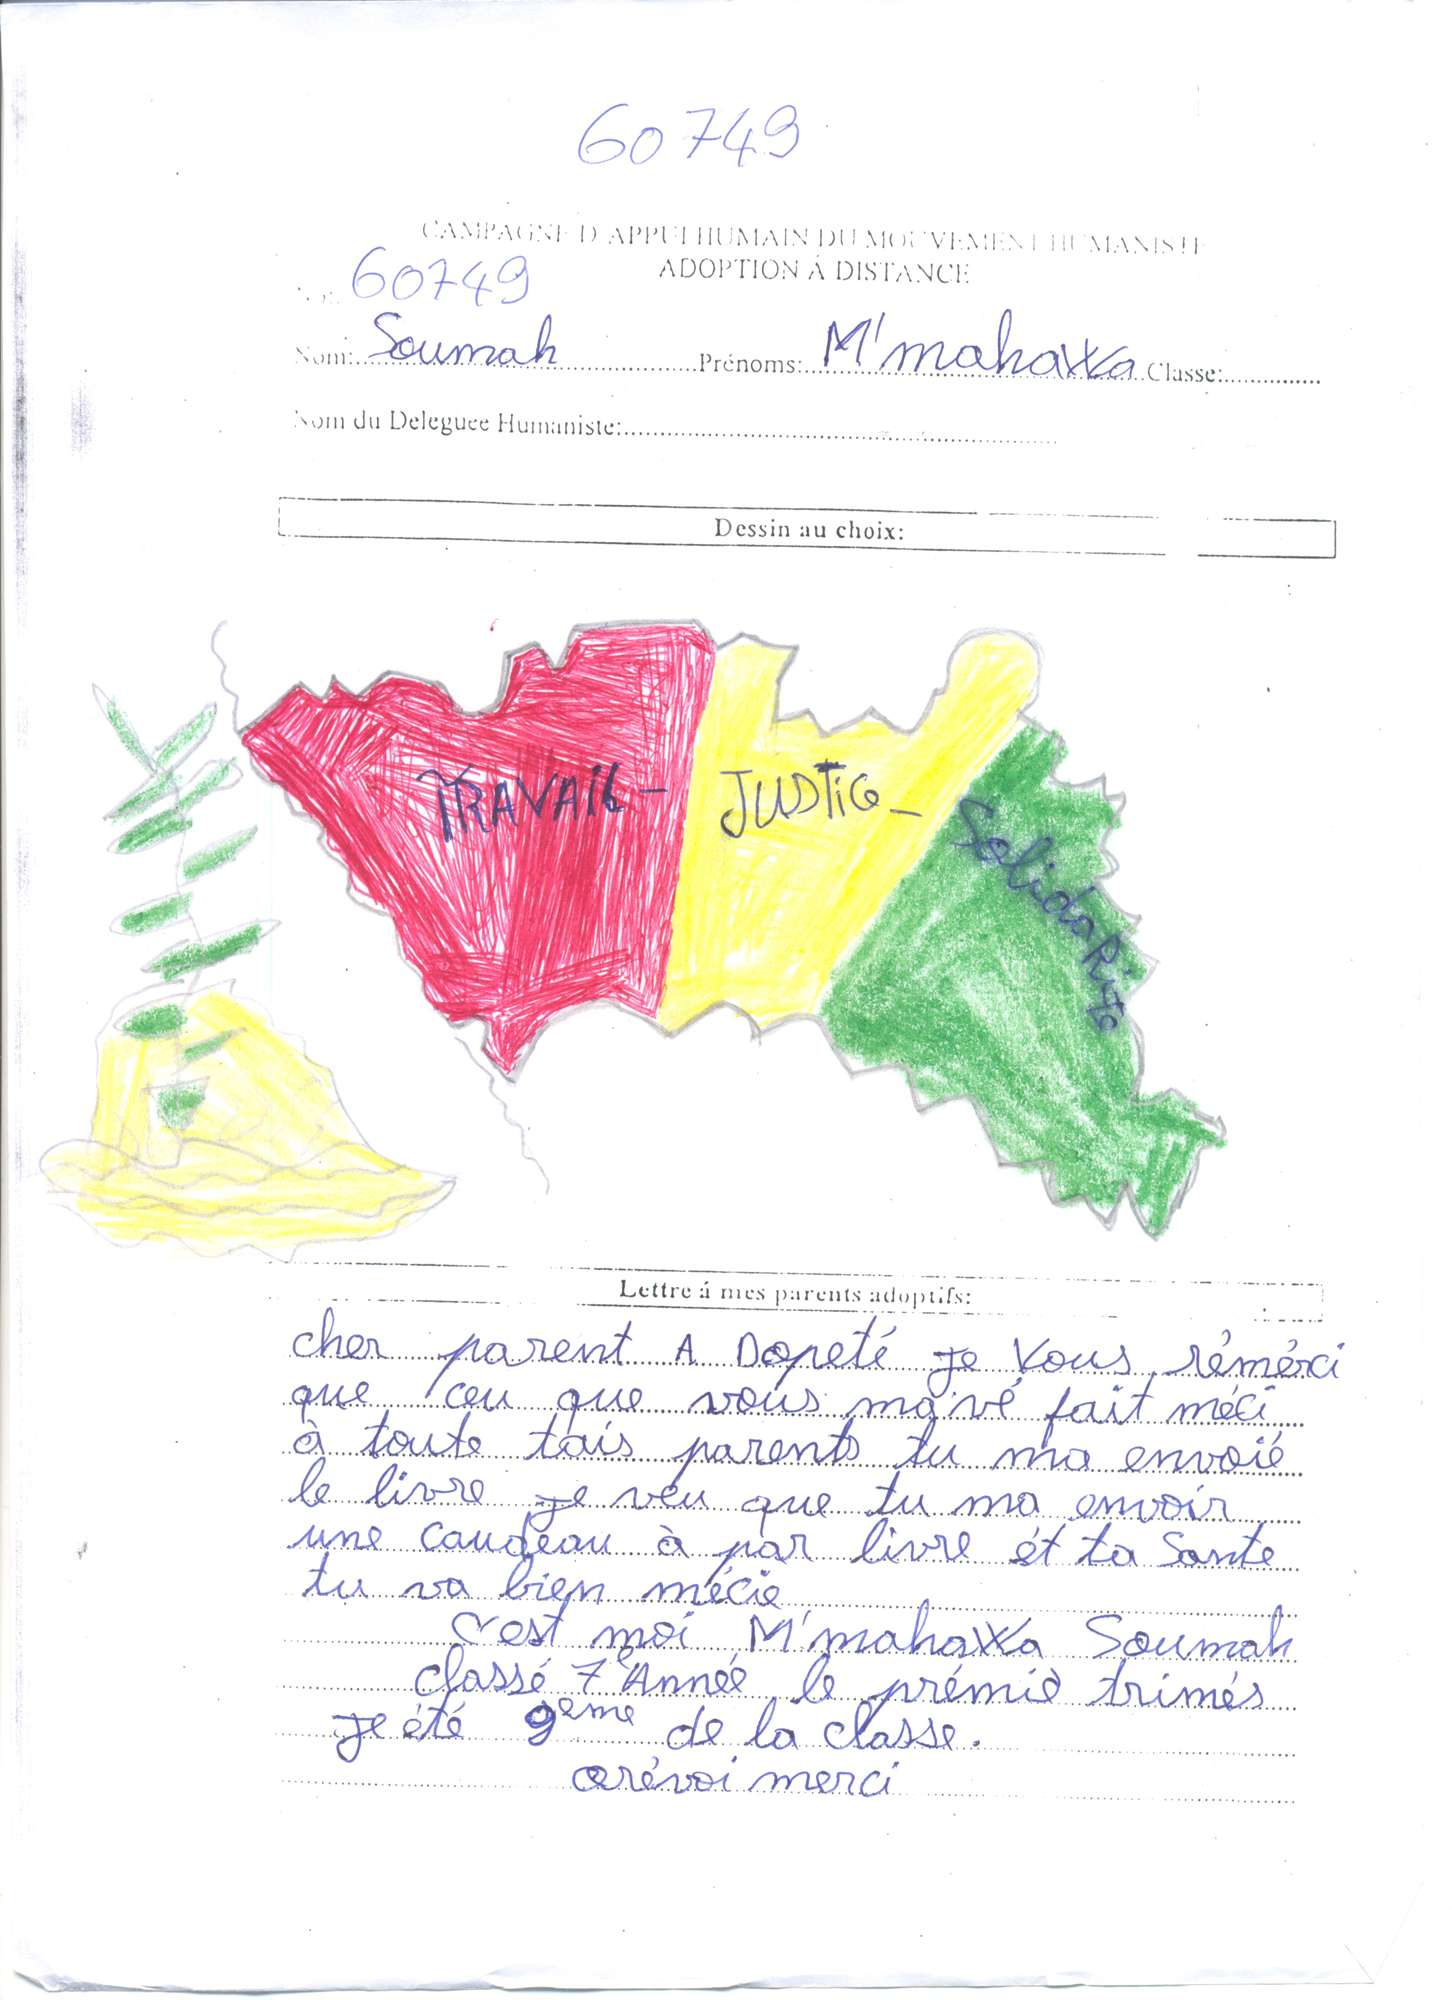 60749
CAMPAGNE D'APPUI HUMAIN DU MOUVEMENT HUMANISTE
ADOPTION Á DISTANCE
60749
Nom: Soumah Prénoms: M'mahawa Classe:
Nom du Deleguee Humaniste:
Dessin au choix:
TRAVAIL - JUSTICe - SolidaRite
Lettre á mes parents adoptifs:
cher parent A Dopeté Je Vous rémérci
que ceu que vous ma'vé fait méci
à toute tais parents tu ma envoié
le livre Je veu que tu ma envoir
une caudeau à par livre ét ta Sante
tu va bien mécie
c'est moi M'mahawa Soumah
classé 7e Année le prémiè trimés
Je été 9eme de la classe.
orévoi merci